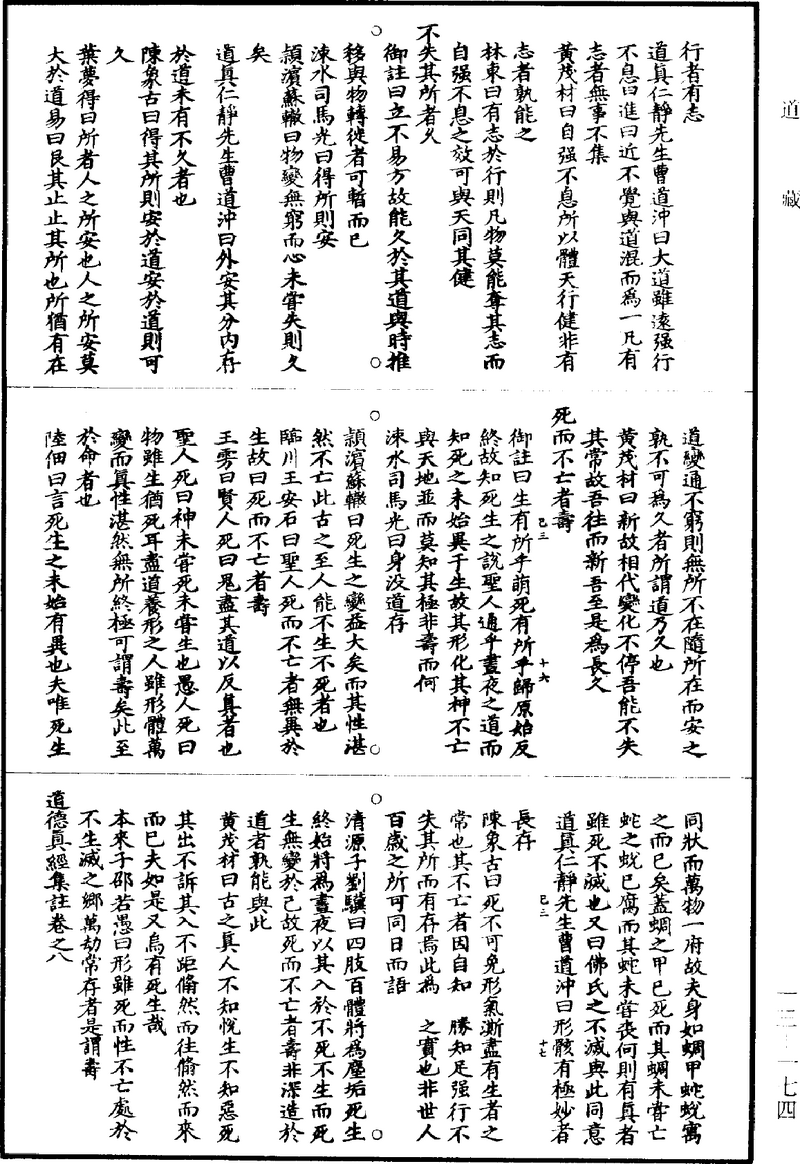 道藏
行者有志
道真仁靜先生曹道沖曰大道雖遠强行
不息曰進曰近不覺與道混而爲一凡有
志者無事不集
黃茂材曰自强不息所以體天行健非有
志者孰能之
林東曰有志於行則凡物莫能奪其志而
自强不息之效可與天同其健
不失其所者久
御註曰立不易方故能久於其道與時推
移與物轉徙者可暫而已
涑水司馬光曰得所則安
頴濱蘇轍曰物變無窮而心未甞失則久
矣
道真仁靜先生曹道沖曰外安其分內存
於道未有不久者也
陳象古曰得其所則安於道安於道則可
久
葉夢得曰所者人之所安也人之所安莫
大於道易曰艮其止止其所也所猶有在
道變通不窮則無所不在隨所在而安之
孰不可爲久者所謂道乃久也
黃茂材曰新故相代變化不停吾能不失
其常故吾往而新吾至是爲長久
死而不亡者壽
己三
十六
御註曰生有所乎萌死有所乎歸原始反
終故知死生之說聖人通乎晝夜之道而
知死之未始異于生故其形化其神不亡
與天地並而莫知其極非壽而何
涑水司馬光曰身没道存
頴濱蘇轍曰死生之變亦大矣而其性湛
然不亡此古之至人能不生不死者也
臨川王安石曰聖人死而不亡者無異於
生故曰死而不亡者壽
王雱曰賢人死曰鬼盡其道以反真者也
聖人死曰神未甞死未甞生也愚人死曰
物雖生猶死耳盡道養形之人雖形體萬
變而真性湛然無所終極可謂壽矣此至
於命者也
陸佃曰言死生之未始有異也夫唯死生
同狀而萬物一府故夫身如蜩甲蛇蛻寓
之而已矣蓋蜩之甲已死而其蜩未甞亡
蛇之蛻已腐而其蛇未甞喪何則有真者
雖死不滅也又曰佛氏之不滅與此同意
己三
十七
道真仁靜先生曹道沖曰形骸有極妙者
長存
陳象古曰死不可免形氣漸盡有生者之
常也其不亡者因自知　勝知足强行不
失其所而有存焉此爲　之實也非世人
百歲之所可同日而語
清源子劉驥曰四肢百體將爲塵垢死生
終始將爲晝夜以其入於不死不生而死
生無變於己故死而不亡者壽非深造於
道者孰能與此
黃茂材曰古之真人不知悅生不知惡死
其出不訴其入不距翛然而往翛然而來
而已夫如是又烏有死生哉
本來子邵若愚曰形雖死而性不亡處於
不生滅之鄉萬劫常存者是謂壽
道德真經集註卷之八
一三—一七四